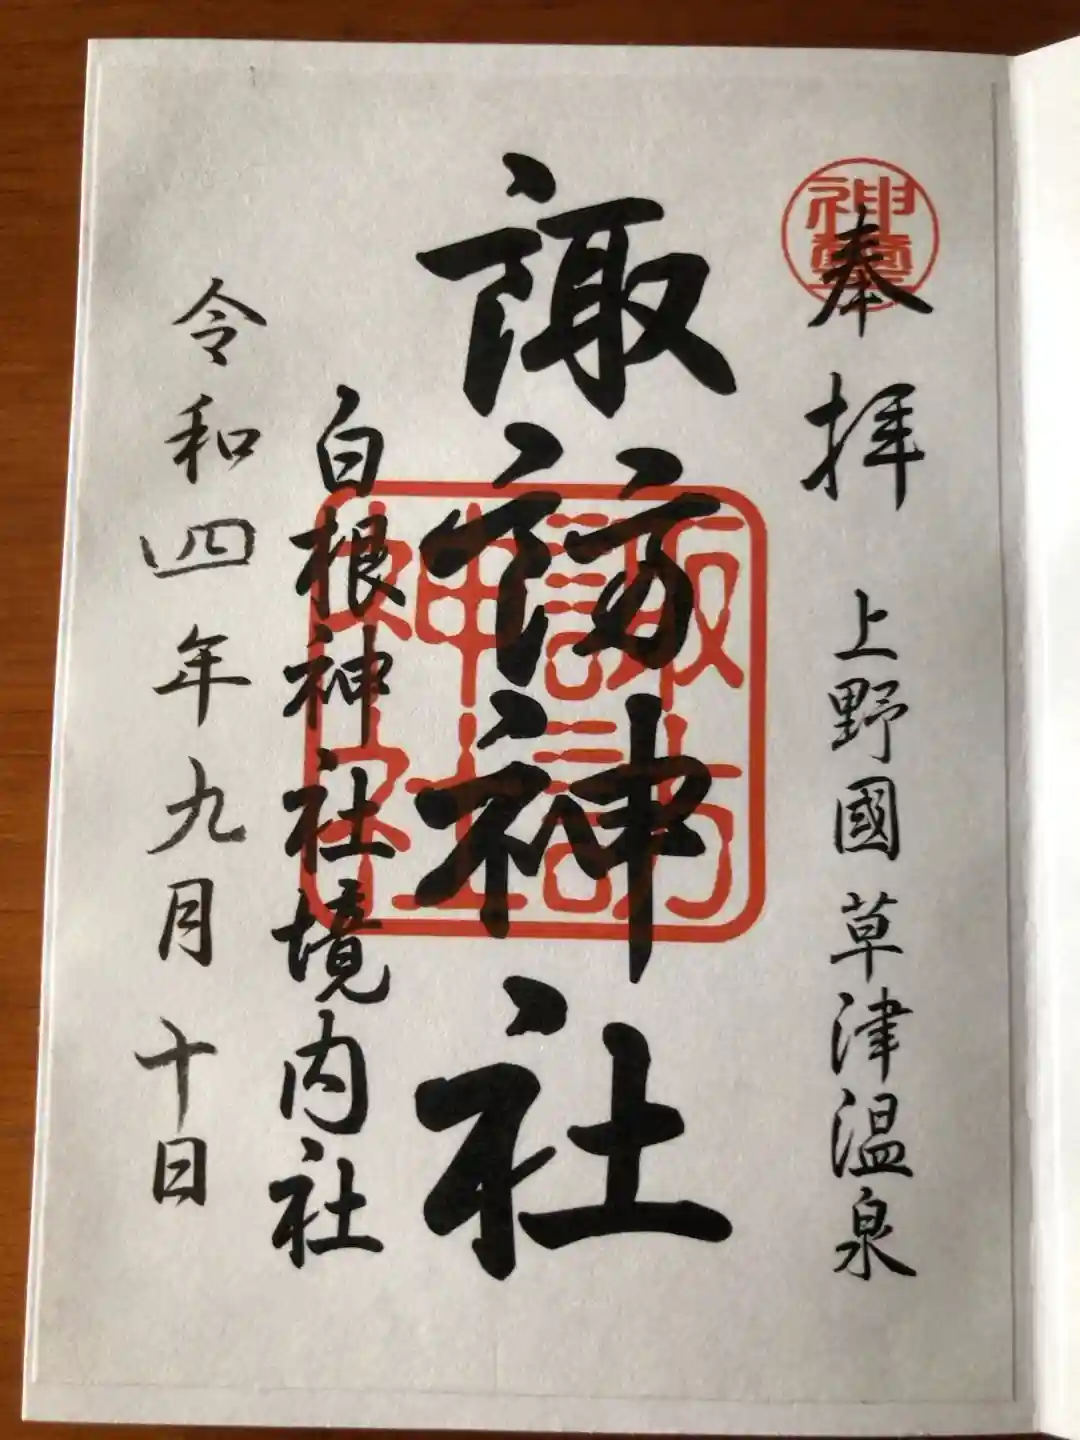 奉拝
上野國草津温泉
諏訪神社
白根神社境内社
令和四年九月十日
諏訪
神社